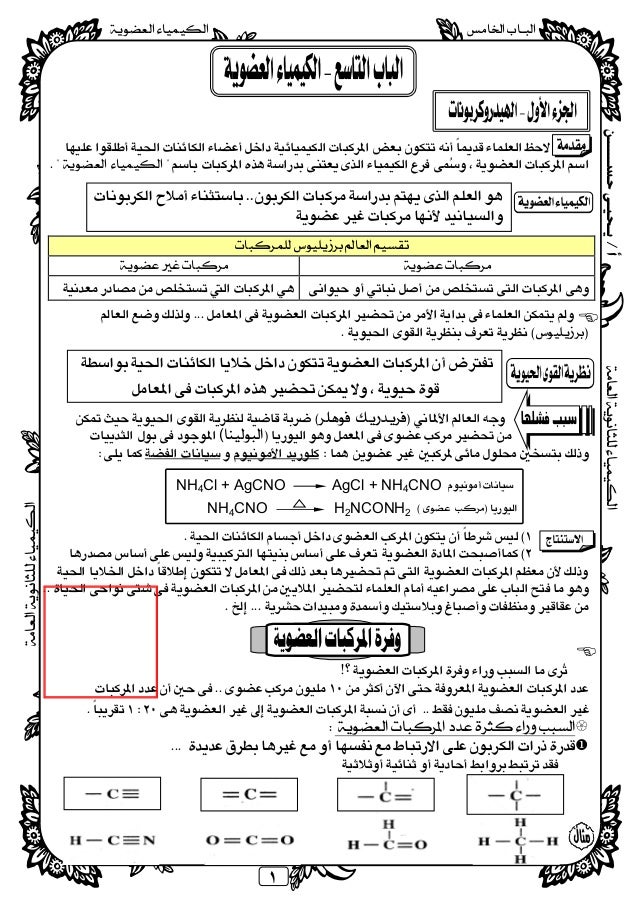 الباب الخامس
الكيمياء العضوية
الباب التاسع - الكيمياء العضوية
الجزء الأول - الهيدروكربونات
مقدمة لاحظ العلماء قديماً أنه تتكون بعض المركبات الكيميائية داخل أعضاء الكائنات الحية أطلقوا عليها
اسم المركبات العضوية ، وسُمى فرع الكيمياء الذى يعتنى بدراسة هذه المركبات باسم " الكيمياء العضوية " .
الكيمياء العضوية
هو العلم الذى يهتم بدراسة مركبات الكربون.. باستثناء أملاح الكربونات
والسيانيد لأنها مركبات غير عضوية
تقسيم العالم برزيليوس للمركبات
مركبات عضوية
مركبات غير عضوية
وهى المركبات التى تستخلص من أصل نباتي أو حيوانى
هي المركبات التي تستخلص من مصادر معدنية
ولم يتمكن العلماء فى بداية الأمر من تحضير المركبات العضوية فى المعامل ... ولذلك وضع العالم
(برزيليوس) نظرية تعرف بنظرية القوى الحيوية .
نظرية القوى الحيوية
تفترض أن المركبات العضوية تتكون داخل خلايا الكائنات الحية بواسطة
قوة حيوية ، ولا يمكن تحضير هذه المركبات فى المعامل
سبب فشلها
وجه العالم الألماني (فريدريك فوهلر) ضربة قاضية لنظرية القوى الحيوية حيث تمكن
من تحضير مركب عضوى فى المعمل وهو اليوريا (البولينا) الموجود فى بول الثدييات
وذلك بتسخين محلول مائى لمركبين غير عضوين هما : كلوريد الأمونيوم و سيانات الفضة كما يلى :
NH4Cl + AgCNO → AgCl + NH4CNO سيانات أمونيوم
NH4CNO △→ H2NCONH2 اليوريا (مركب عضوى)
الاستنتاج
١) ليس شرطاً أن يتكون المركب العضوى داخل أجسام الكائنات الحية .
٢) كما أصبحت المادة العضوية تعرف على أساس بنيتها التركيبية وليس على أساس مصدرها
وذلك لأن معظم المركبات العضوية التى تم تحضيرها بعد ذلك فى المعامل لا تتكون إطلاقاً داخل الخلايا الحية
وهو ما فتح الباب على مصراعيه أمام العلماء لتحضير الملايين من المركبات العضوية فى شتى نواحى الحياة ..
من عقاقير ومنظفات وأصباغ وبلاستيك وأسمدة ومبيدات حشرية ... إلخ .
وفرة المركبات العضوية
تُرى ما السبب وراء وفرة المركبات العضوية ؟!
عدد المركبات العضوية المعروفة حتى الآن أكثر من ١٠ مليون مركب عضوى .. فى حين أن عدد المركبات
غير العضوية نصف مليون فقط .. أى أن نسبة المركبات العضوية إلى غير العضوية هى ٢٠ : ١ تقريباً .
السبب وراء كثرة عدد المركبات العضوية :
❶ قدرة ذرات الكربون على الارتباط مع نفسها أو مع غيرها بطرق عديدة ...
فقد ترتبط بروابط أحادية أو ثنائية أوثلاثية
— C —
— C =
= C =
— C ≡
مثال
H
H — C — H
H
H
H — C = O
O = C = O
H — C ≡ N
١
أ / يحيى حسن
الكيمياء للثانوية العامة
الكيمياء للثانوية العامة